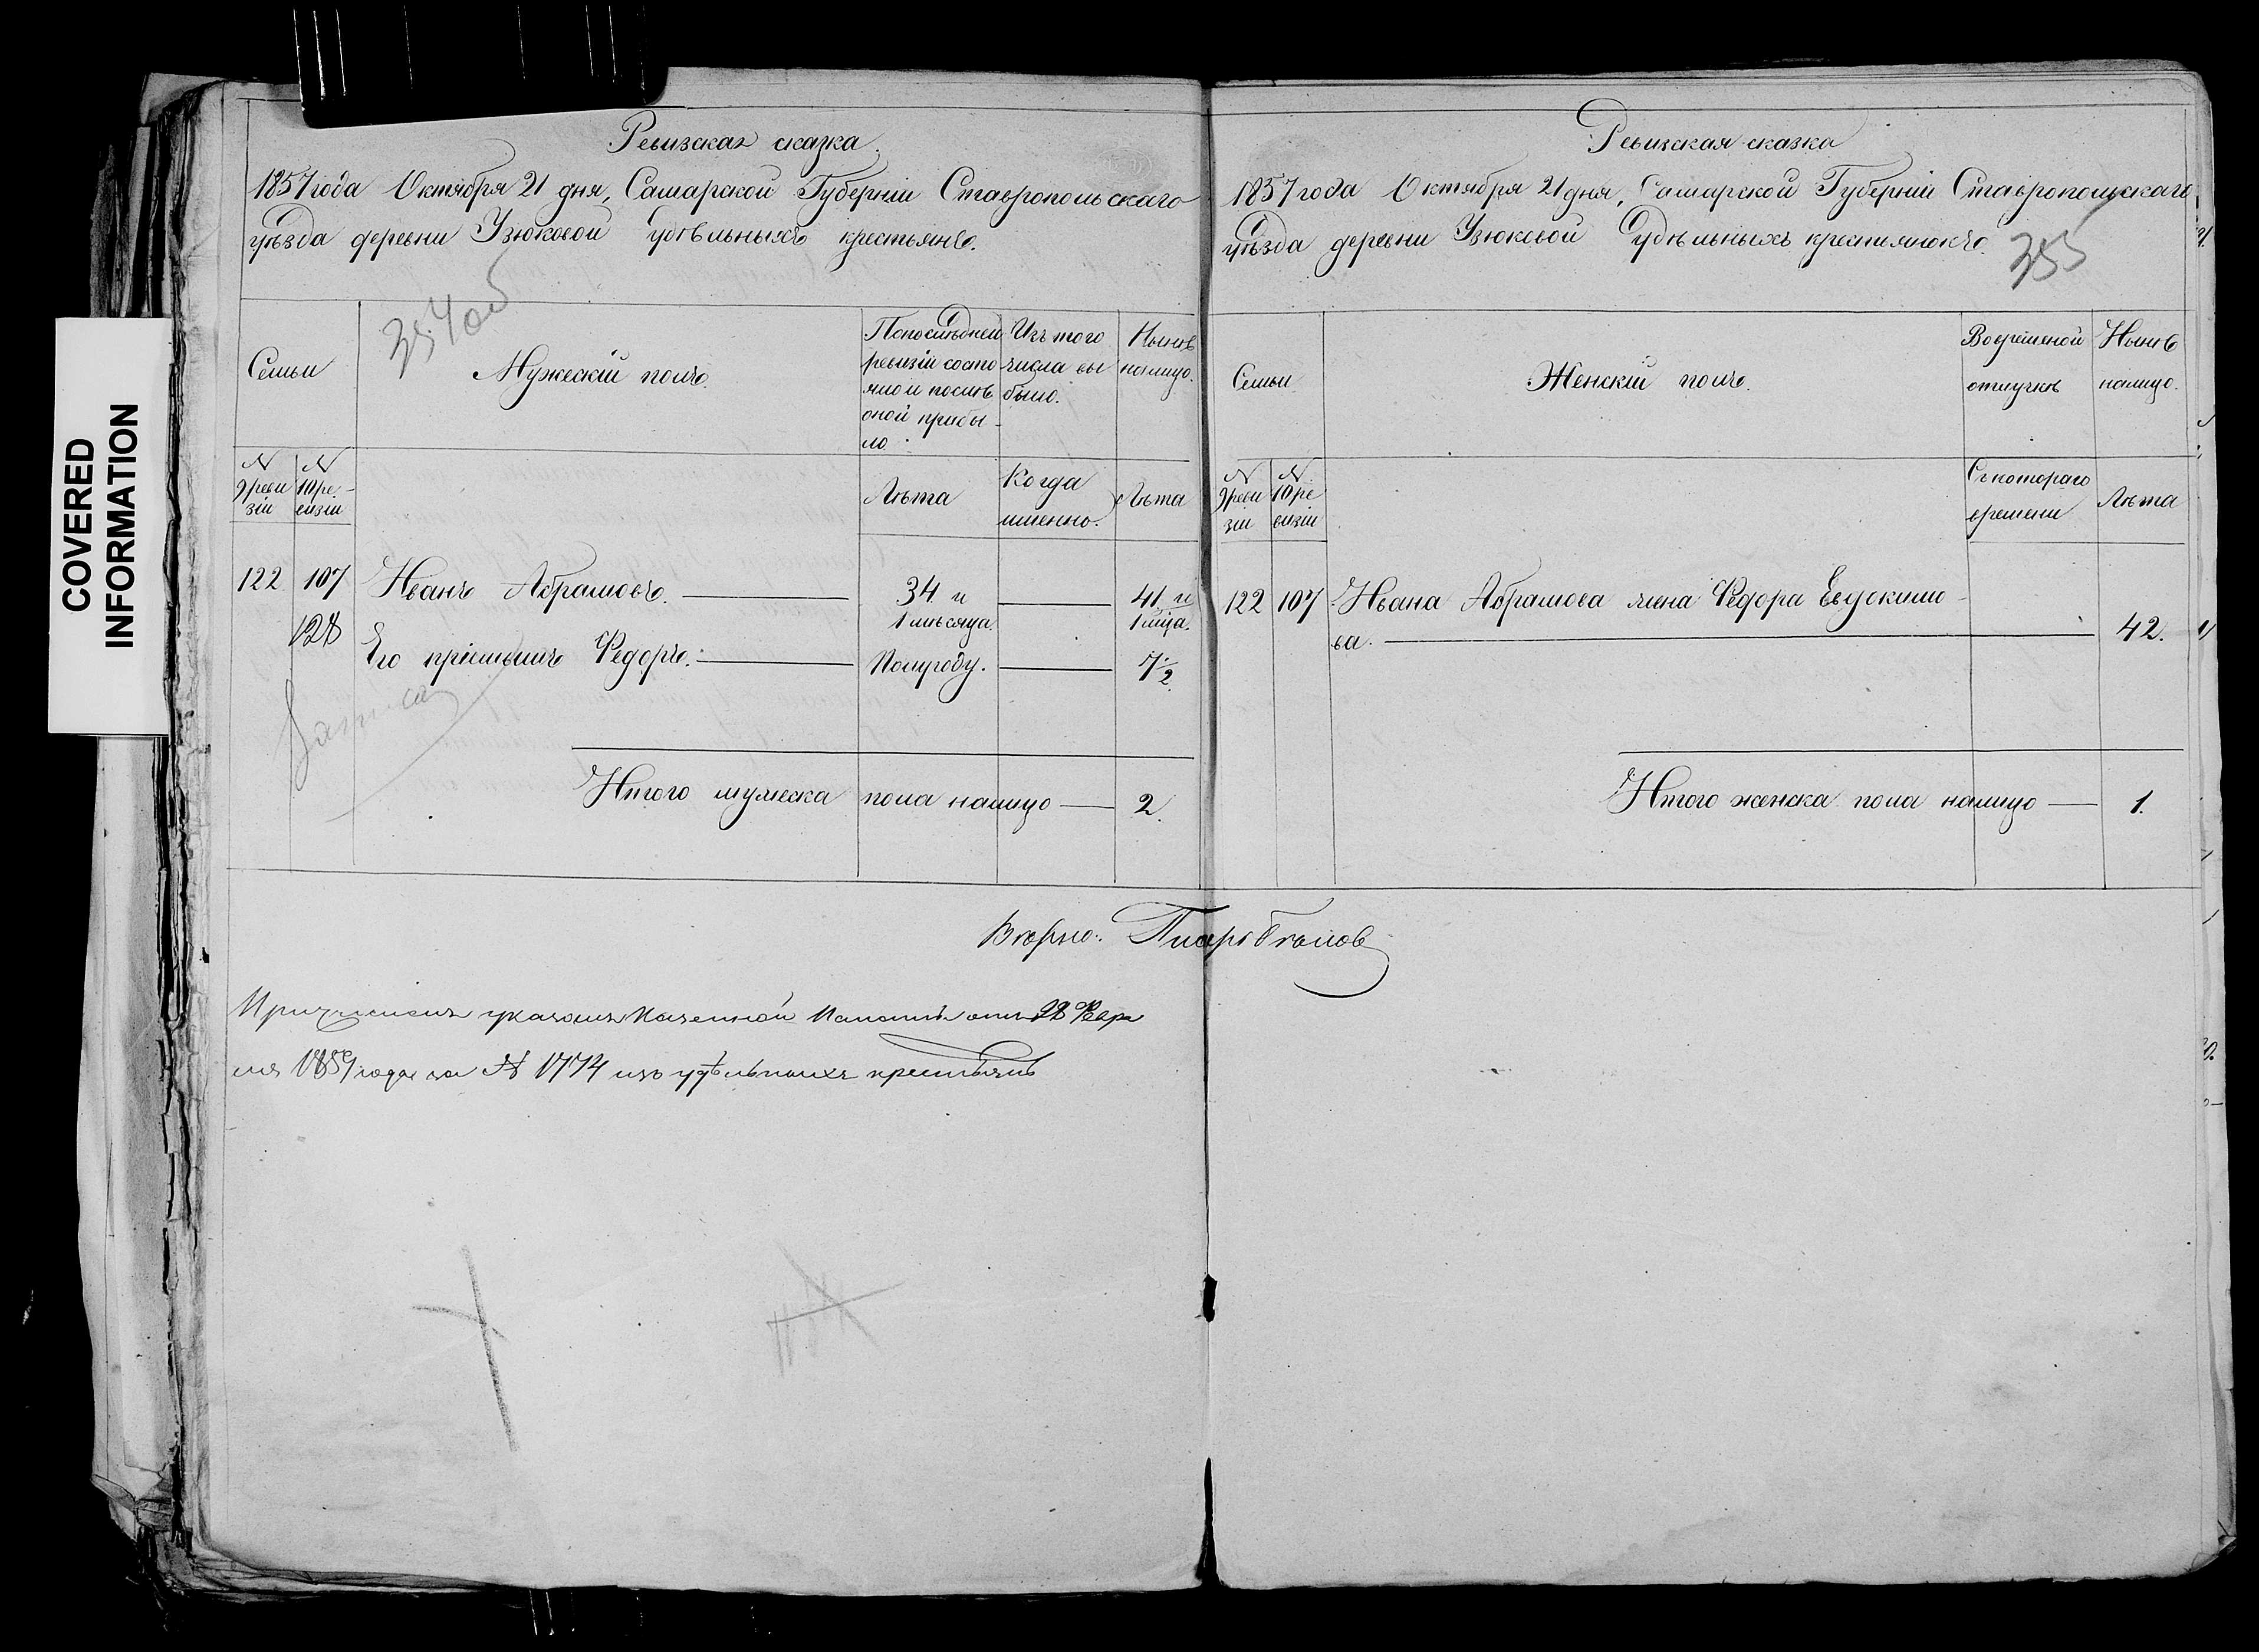 COVERED
INFORMATION
Ревизская сказка.
1857 года Октября 21 дня, Самарской Губерніи Ставропольскаго
уѣзда деревни Узюковой удѣльныхъ крестьянъ.
354 об
Семьи
Мужескій полъ.
По последней
ревизіи состо
яло и послѣ
оной прибы-
ло.
Изъ того
числа вы
было.
Нынѣ
налицо.
№
9 реви
зіи
№
10 ре-
визіи
Лѣта
Когда
именно.
Лѣта
122 107 Иванъ Абрамовъ. 34 и 41 и
1 мѣсяца. 1 мѣца.
128
Его пріемышъ Федоръ. Полугоду. 7½.
Итого мужеска пола налицо 2.
Ревизская сказка
1857 года Октября 21 дня, Самарской Губерніи Ставропольскаго
уѣзда деревни Узюковой Удѣльныхъ крестьянокъ.
355
Семьи
Женскій полъ.
Во времяной
отлучкѣ
Нынѣ
налицо.
№
9 реви
зіи
№
10 ре
визіи
Съ котораго
времени
Лѣта
122 107 Ивана Абрамова жена Федора Евдокимо-
ва. 42.
Итого женска пола налицо 1.
Вѣрно:
Причислен указом Казенной Палаты от 28 Февра
ля 1859 года за № 1774 изъ удѣльныхъ крестьянъ